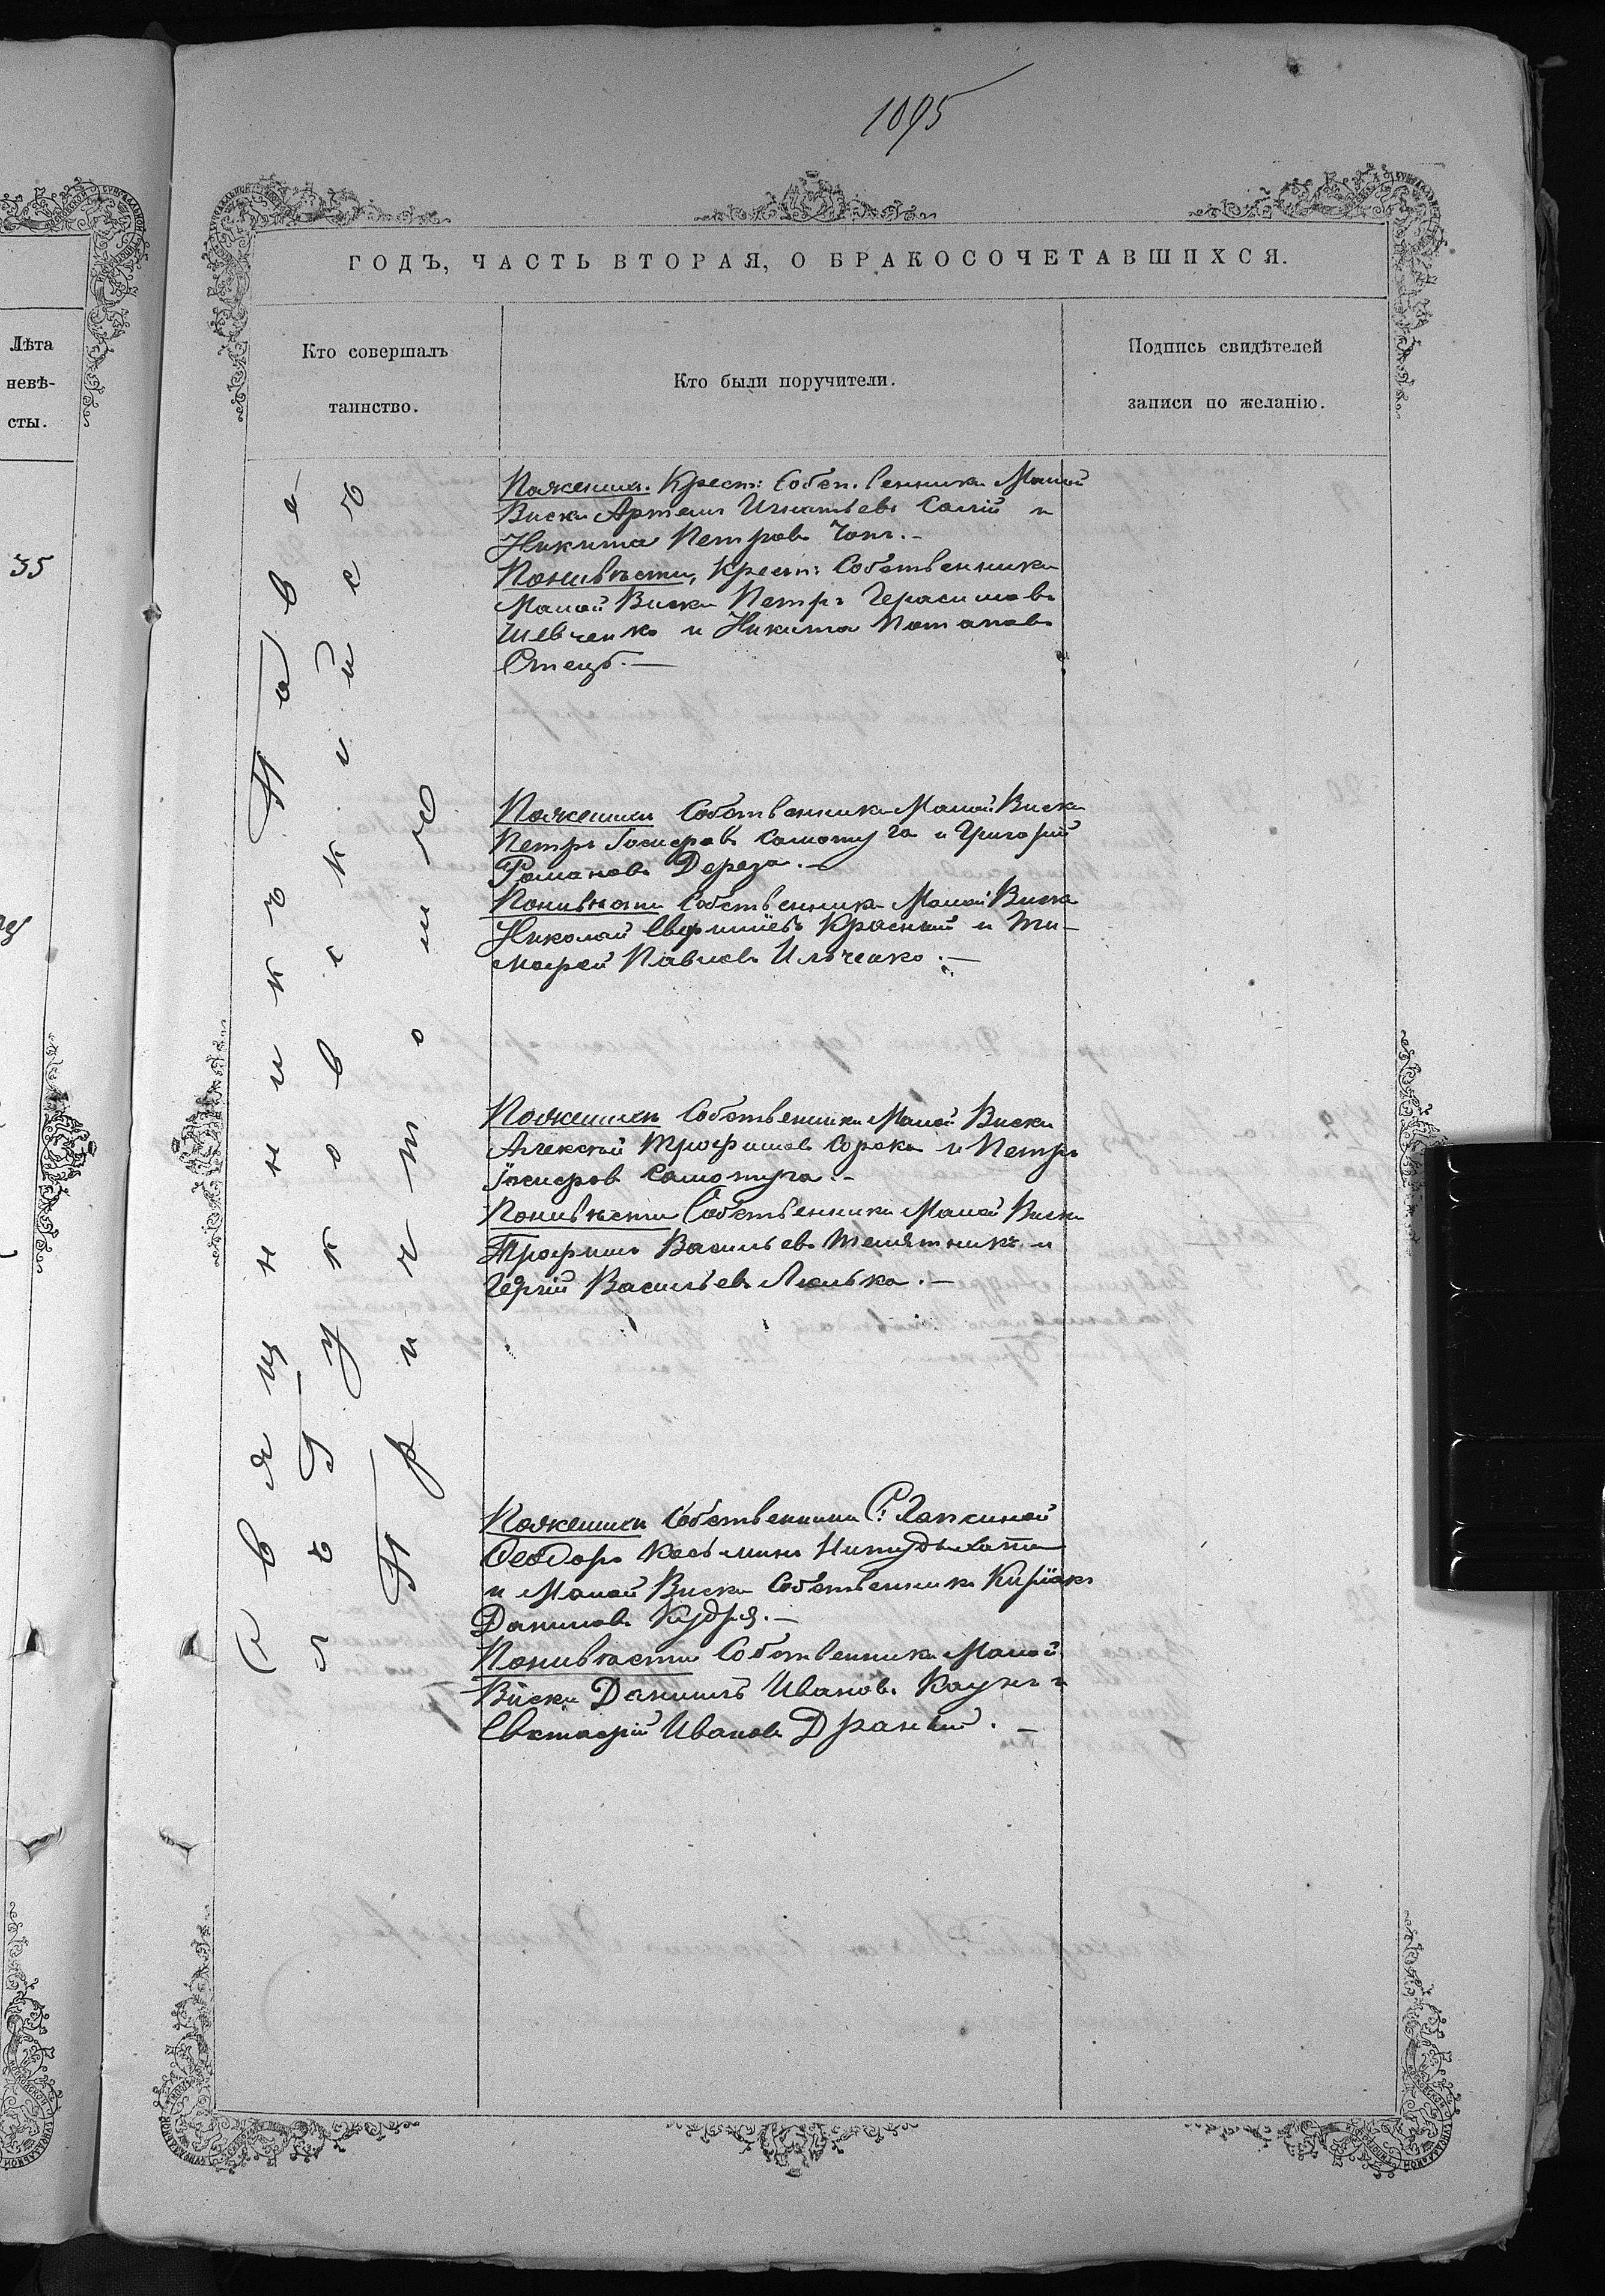 1095
ГОДЪ, ЧАСТЬ ВТОРАЯ, О БРАКОСОЧЕТАВШИХСЯ.
Лѣта
невѣ-
сты.
35
Кто совершалъ
таинство.
Кто были поручители.
Подпись свидѣтелей
записи по желанію.
Священникъ Павелъ
съ причтомъ
Пожениху Крест: Собственники Малой
Виски Артемъ Игнатьевъ Салій и
Никита Петровъ Чопъ.-
Поневѣсти, Крест: Собственники
Малой Виски Петръ Герасимовъ
Шевченко и Никита Потаповъ
Стецъ.-
Поженихи Собственники Малой Виски
Петръ Іосифовъ Самотуга и Григорій
Романовъ Дереза.-
Поневѣсти Собственники Малой Виски
Николай Евфиміевъ Красній и Ти-
мофей Павловъ Ильченко.-
Поженихи Собственники Малой Виски
Алексѣй Трофимовъ Сорока и Петръ
Іосифовъ Самотуга.-
Поневѣсти Собственники Малой Виски
Трофимъ Васильевъ Телятникъ и
Васильевъ Люлька.-
Поженихи Собственники С:
Ѳеодоръ Косьминъ
и Малой Виски Собственникъ Киріакъ
Даниловъ Кудря.-
Поневѣсти Собственники Малой
Виски Даниилъ Ивановъ Каунъ и
Евстафій Ивановъ Дранкій.-